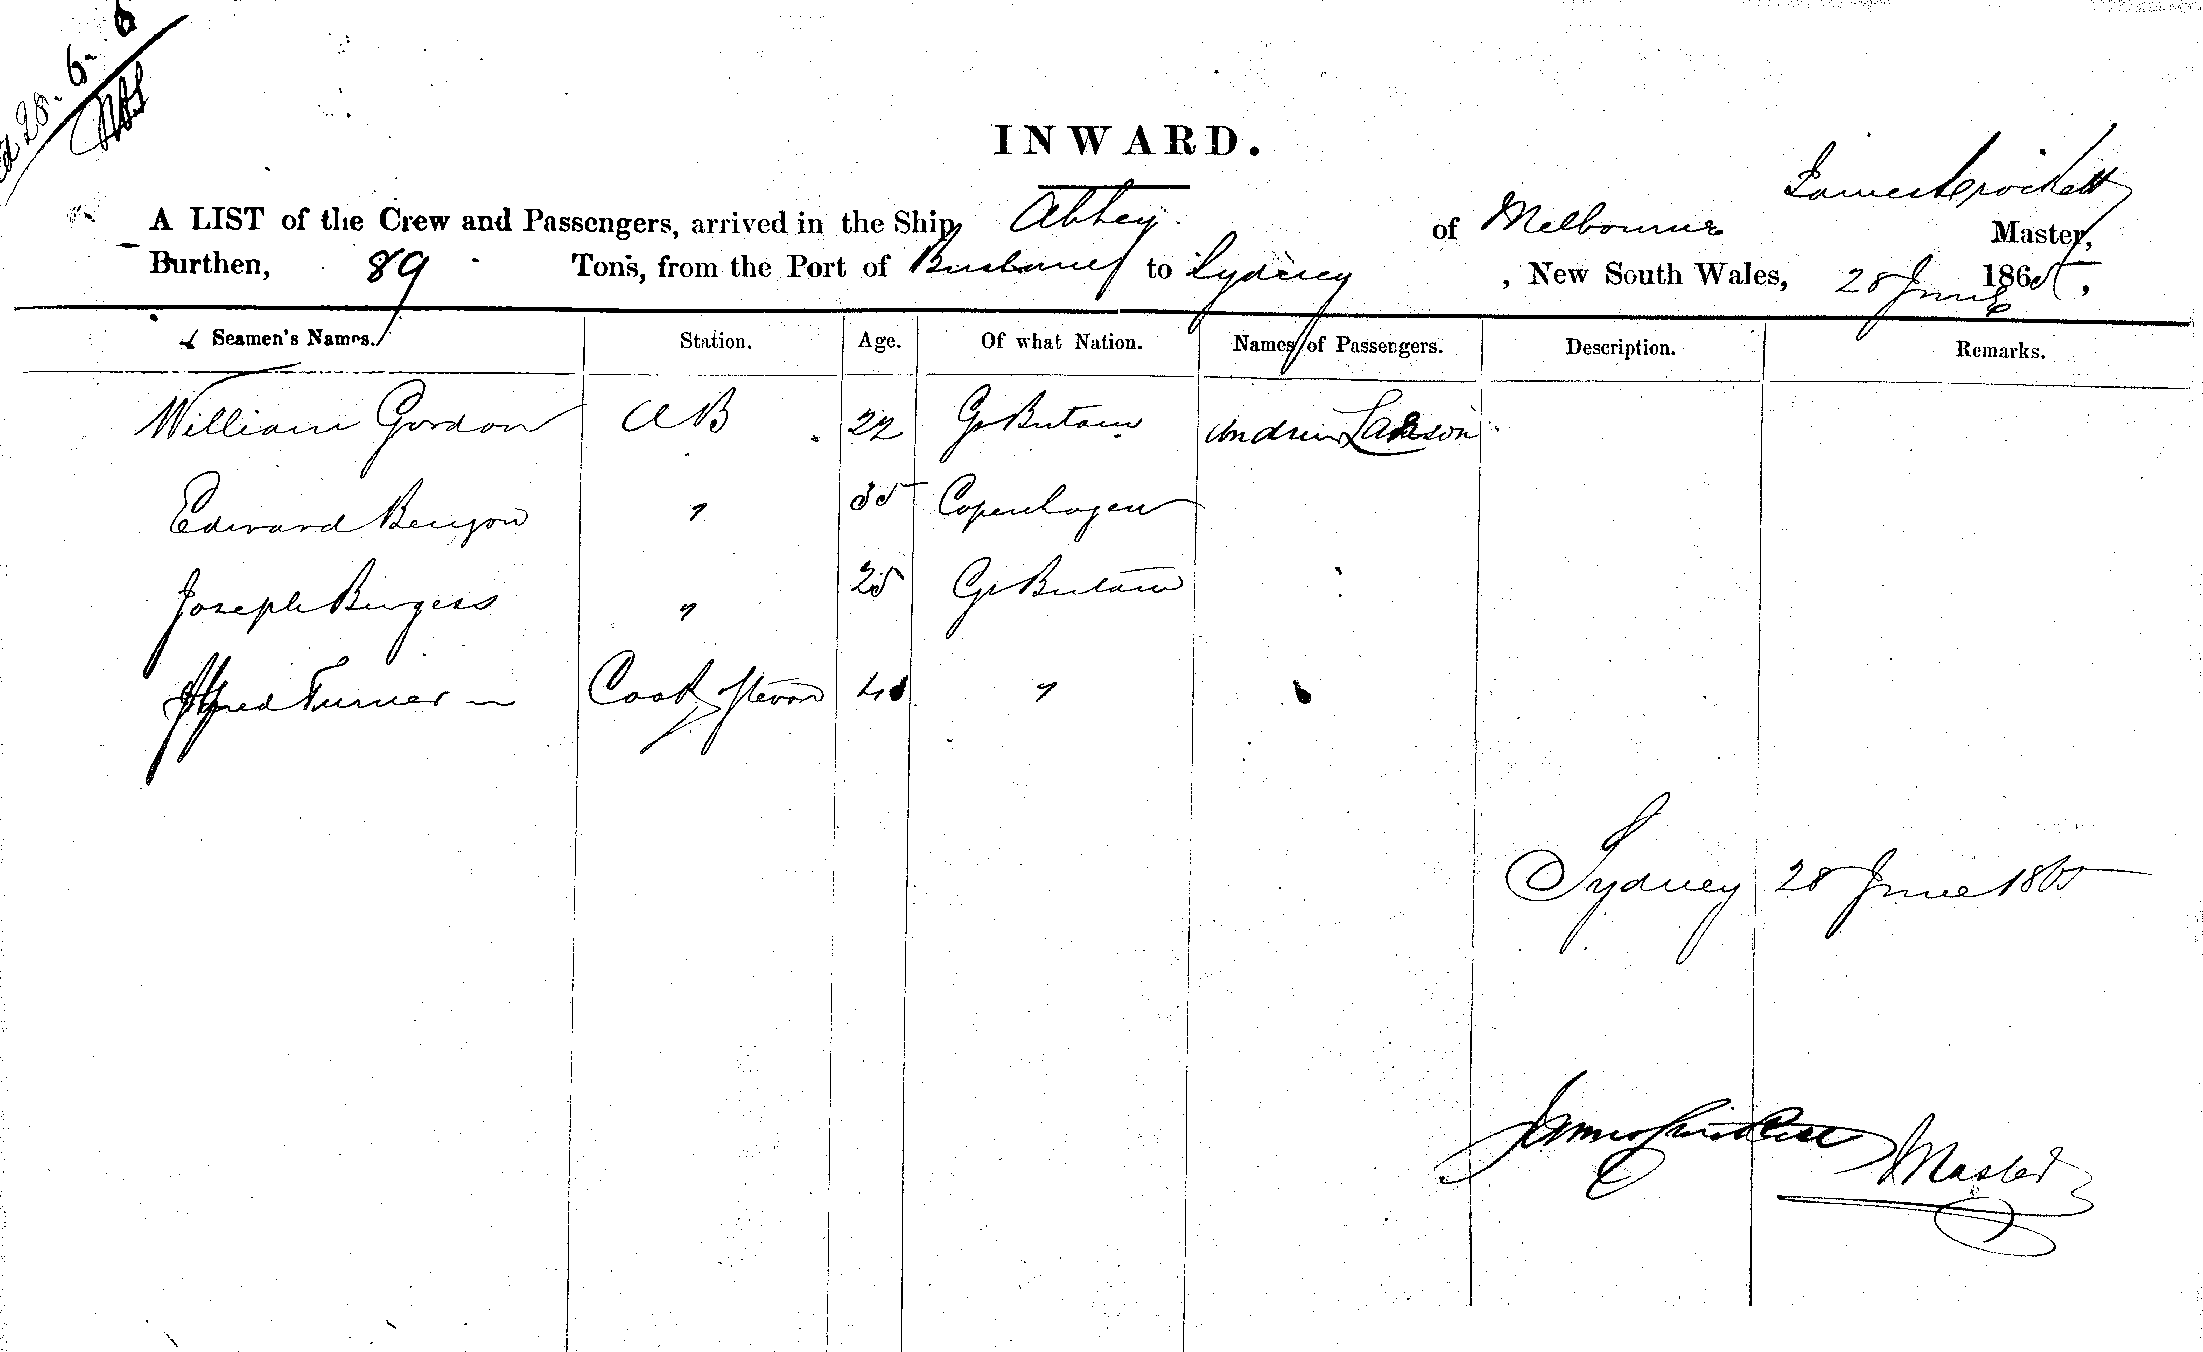 28. 6. 6
INWARD.
James Crockett
A LIST of the Crew and Passengers, arrived in the Ship Abbey of Melbourne Master,
Burthen, 89 Tons, from the Port of Brisbane to Sydney , New South Wales, 28 June 1865,
Seamen's Names. Station. Age. Of what Nation. Names of Passengers. Description. Remarks.
William Gordon AB 22 Gt Britain Andrew Larson
Edward Benyon " 35 Copenhagen
Joseph Burgess " 25 Gt Britain
Alfred Turner Cook & Steward "
Sydney 28 June 1865
James Crockett Master